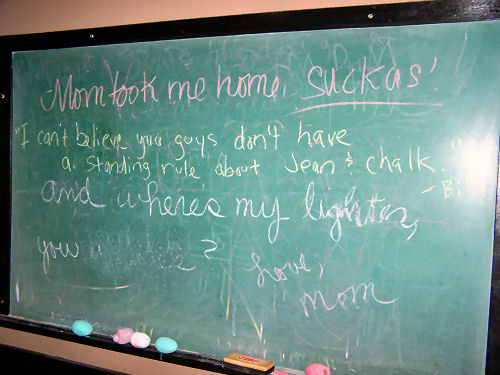 Mom took me home, suckas!
"I can't believe you guys don't have
a standing rule about Jean & chalk."
~ Bi
and where's my lighter,
you ?
Love,
Mom